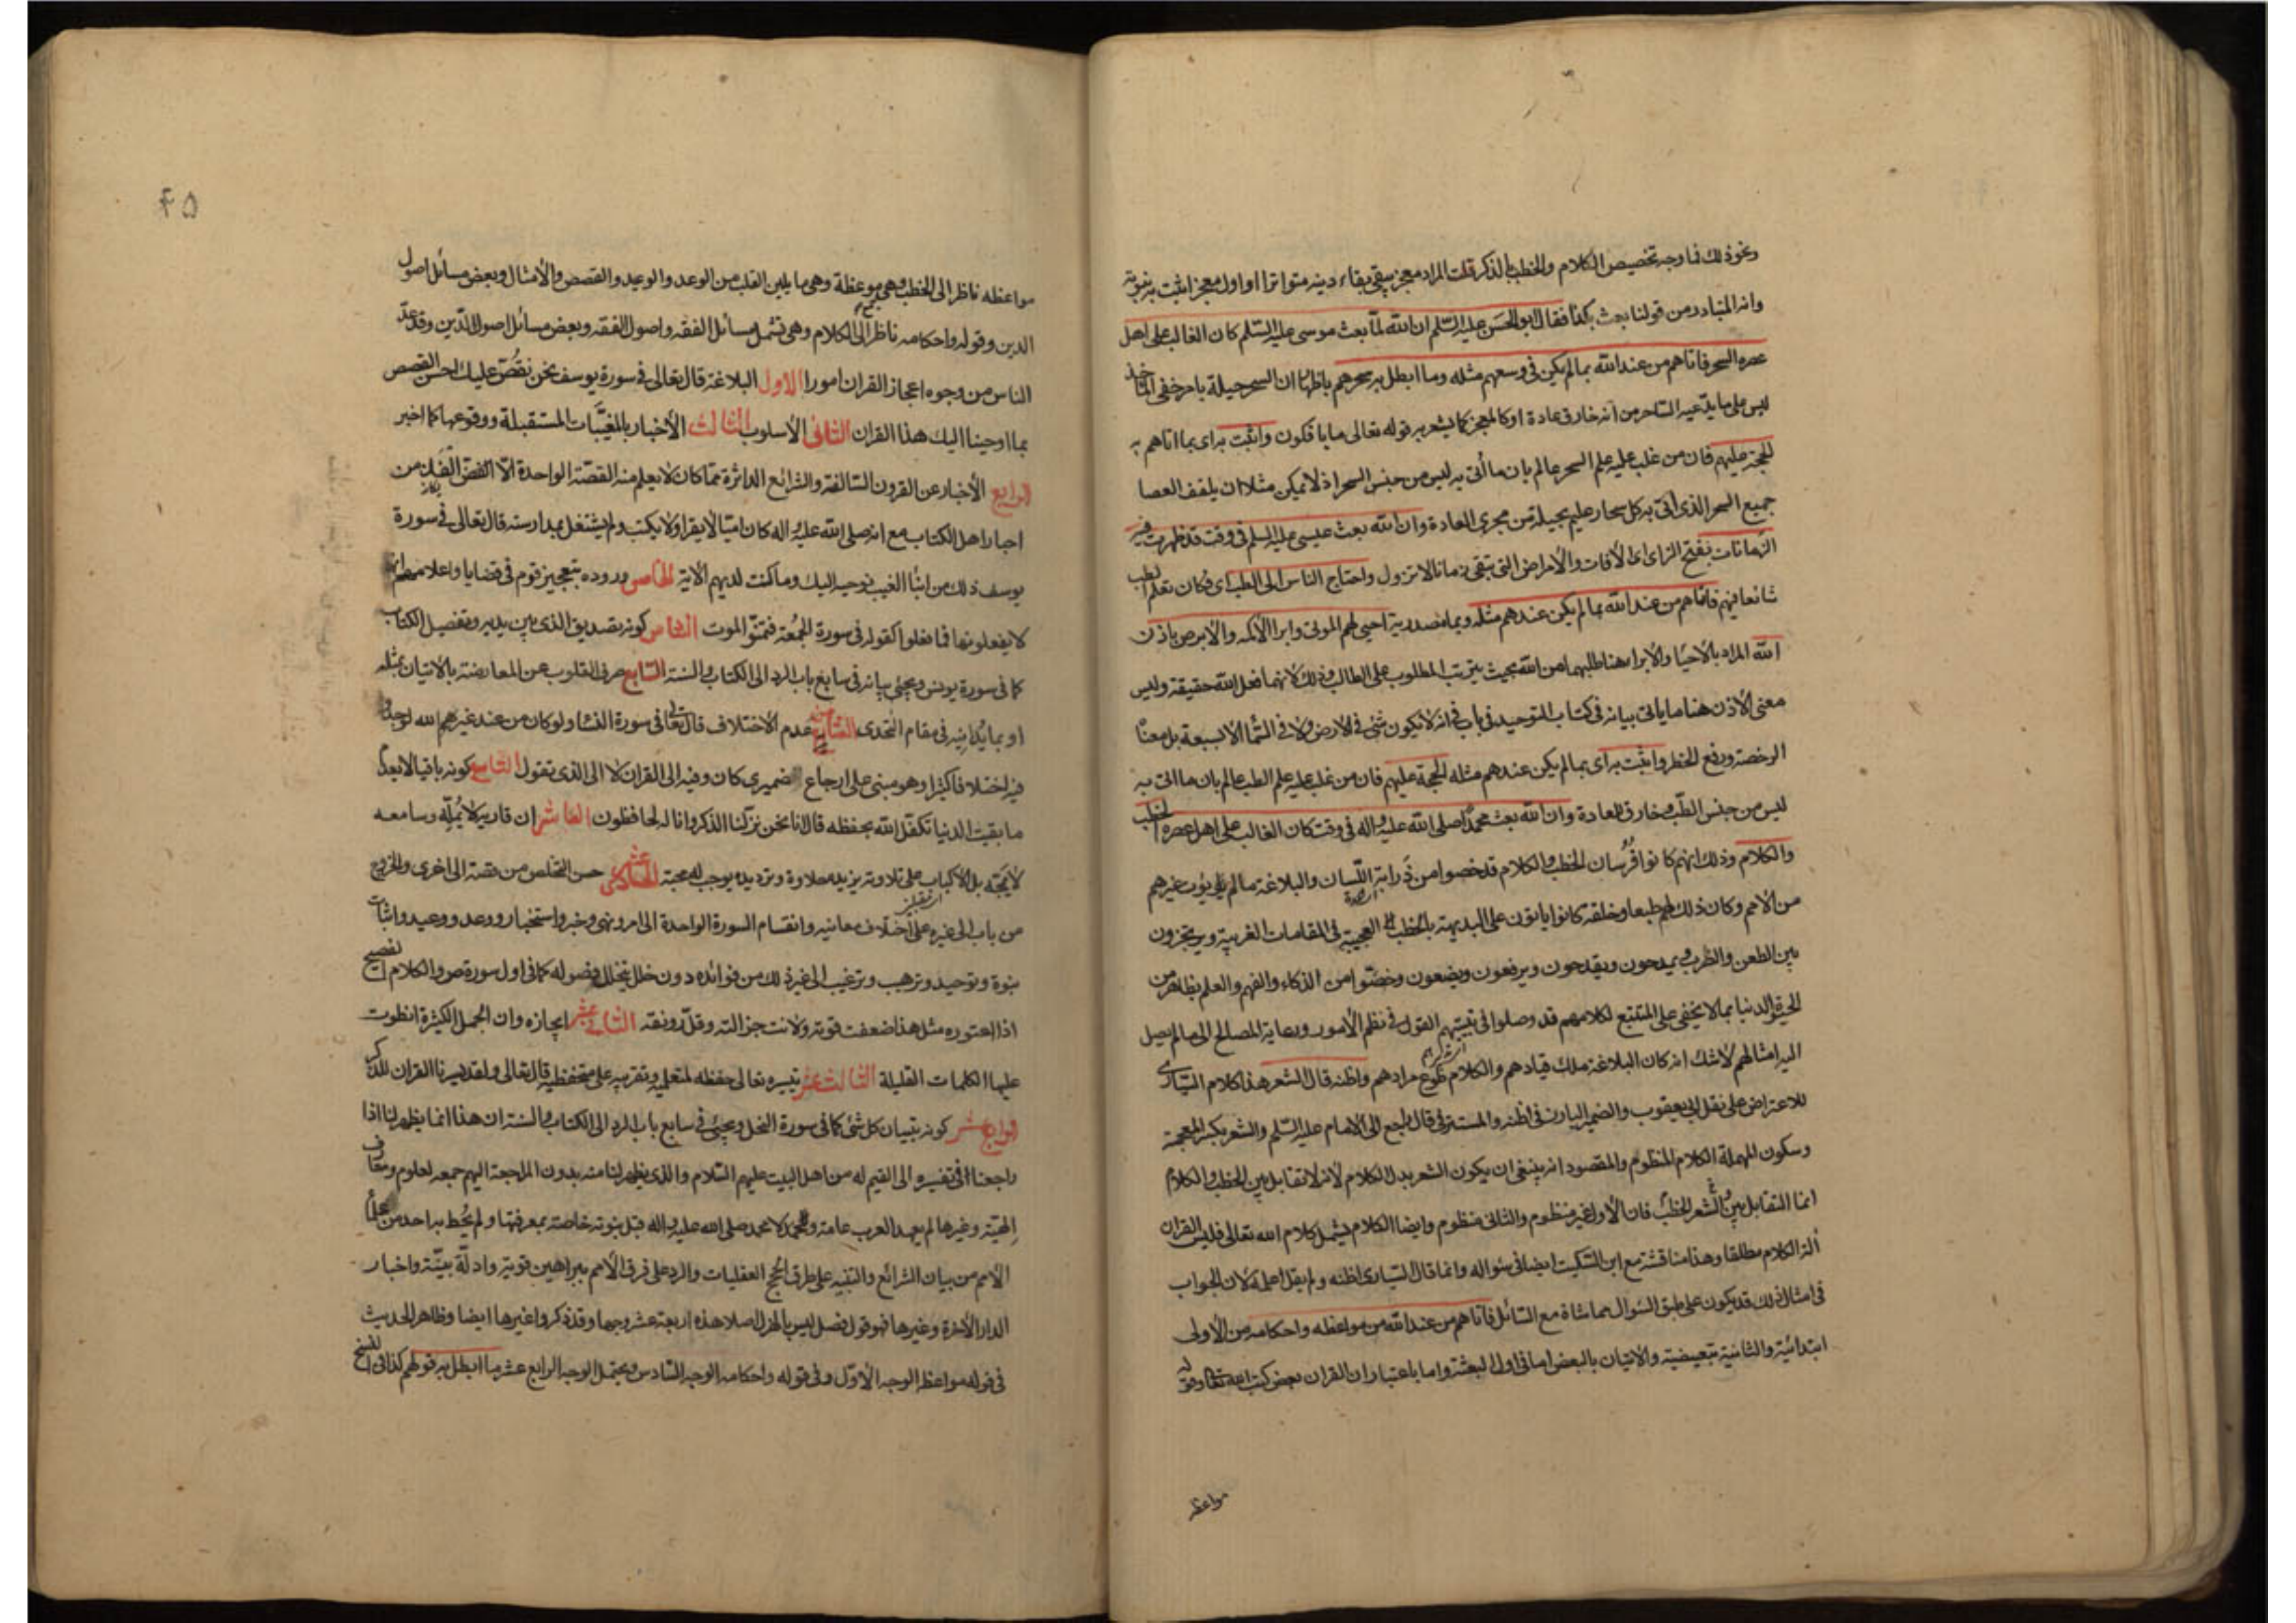 ونحو ذلك فما وجه تخصيص الكلام والخطب بالذكر قلت المراد معجز يبقى ببقاء دينه متواترا او اول معجز اثبت به نبوته
وانه المتبادر من قولنا بعث بكذا فقال ابو الحسن عليه السلم ان الله لما بعث موسى عليه السلم كان الغالب على اهل
عصره السحر فاتاهم من عند الله بما لم يكن في وسعهم مثله وما ابطل به سحرهم باظهار ان السحر حيلة بامر خفي الماخذ
ليس على ما يدعيه الساحر من انه خارق عادة او كالمعجز كما يشعر به قوله تعالى ما يافكون واثبت به اي بما اتاهم به
الحجة عليهم فان من غلب عليه علم السحر عالم بان ما أتى به ليس من جنس السحر اذ لا يمكن مثلا ان يلقف العصا
جميع السحر الذي اتى به كل سحار عليم بحيلة من مجرى العادة وان الله بعث عيسى عليه السلم في وقت قد ظهرت فيه
الزمانات بفتح الزاى اى الآفات والامراض التي تبقى زمانا لا تزول واحتاج الناس الى الطب اى وكان تعلم الطب
شائعا فيهم فاتاهم من عند الله بما لم يكن عندهم مثله وبما مصدرية احيى لهم الموتى وابرا الاكمه والابرص باذن
الله المراد بالاحيا والابرا هنا طلبهما من الله بحيث يترتب المطلوب على الطالب وذلك لانهما فعل الله حقيقة وليس
معنى الاذن هنا ما ياتي بيانه في كتاب التوحيد في باب في انه لا يكون شئ في الارض ولا في السما الا بسبعة بل معناه
الرخصة ورفع الخطر واثبت به اى بما لم يكن عندهم مثله الحجة عليهم فان من غلب عليه علم الطب عالم بان ما اتى به
ليس من جنس الطب وخارق للعادة وان الله بعث محمدا صلى الله عليه واله في وقت كان الغالب على اهل عصره الخطب
والكلام وذلك انهم كانوا فرسان الخطب والكلام قد خصوا من ذرابة اللسان والبلاغة ما لم يؤت غيرهم
من الامم وكان ذلك لهم طبعا وخلقة كانوا ياتون على البديهة بالخطب العجيبة في المقامات الغريبة ويرتجزون
بين الطعن والضرب ويمدحون ويقدحون ويرفعون ويضعون وخصوا من الذكاء والفهم والعلم بظاهر من
الحيوة الدنيا بما لا يخفى على المتتبع لكلامهم قد وصلوا في تبيينهم القول في نظم الامور ورعاية المصالح الى ما لم يصل
اليه امثالهم لا شك انه كان البلاغة ملك قيادهم والكلام طوع مرادهم واظنه قال الشعر هذا كلام السيارى
للاعتراض على نقل ابي يعقوب والضمير البارز في اظنه والمستتر في قال راجع الى الامام عليه السلم والشعر بكسر المعجمة
وسكون المهملة الكلام المنظوم والمقصود انه ينبغي ان يكون الشعر بدل الكلام لانه لا تقابل بين الخطب والكلام
انما التقابل بين الشعر والخطب فان الاول غير منظوم والثاني منظوم وايضا الكلام يشمل كلام الله تعالى فليس القران
آلة الكلام مطلقا وهذا مناقشة مع ابن السكيت ايضا في سؤاله وانما قال السيارى اظنه ولم يقل اعلمه لان الجواب
في امثال ذلك قد يكون على طبق السؤال مماشاة مع السائل فاتاهم من عند الله من مواعظه واحكامه من الاولى
ابتدائية والثانية تبعيضية والاتيان بالبعض اما في اول البعثة واما باعتبار ان القران بعض كتب الله تعالى وقوله
مواعظه
٤٥
مواعظه ناظر الى الخطب وهي موعظة وهي ما يلين القلب من الوعد والوعيد والقصص والامثال وبعض مسائل اصول
الدين وقوله واحكامه ناظر الى الكلام وهي تشمل مسائل الفقه واصول الفقه وبعض مسائل اصول الدين وقد عد
الناس من وجوه اعجاز القران امورا الاول البلاغة قال تعالى في سورة يوسف نحن نقص عليك احسن القصص
بما اوحينا اليك هذا القران الثاني الأسلوب الثالث الأخبار بالمغيبات المستقبلة ووقوعها كما اخبر
الرابع الأخبار عن القرون السالفة والشرائع الداثرة مما كان لا يعلم منه القصة الواحدة الا الفذ من
احبار اهل الكتاب مع انه صلى الله عليه واله كان اميا لا يقرا ولا يكتب ولم يشتغل بمدارسة قال تعالى في سورة
يوسف ذلك من انباء الغيب نوحيه اليك وما كنت لديهم الآية الخامس وروده بتعجيز قوم في قضايا واعلامهم انهم
لا يفعلونها فما فعلوا كقوله في سورة الجمعة فتمنوا الموت السادس كونه تصديق الذى بين يديه وتفصيل الكتاب
كما في سورة يونس ويجئ بيانه في سابع باب الرد الى الكتاب والسنة السابع صرف القلوب عن المعارضة بالاتيان بمثله
او بما يدانيه في مقام التحدى الثامن عدم الاختلاف قال تعالى في سورة النسا ولو كان من عند غير الله لوجدوا
فيه اختلافا كثيرا وهو مبنى على ارجاع ضميرى كان وفيه الى القران لا الى الذى تقول التاسع كونه باقيا لا يعدم
ما بقيت الدنيا تكفل الله بحفظه قال انا نحن نزلنا الذكر وانا له لحافظون العاشر ان قاريه لا يمله وسامعه
لا يمجه بل الاكباب على تلاوته يزيده حلاوة وترديده يوجب له محبة الحادى عشر حسن التخلص من قصة الى اخرى والخروج
من باب الى غيره على اختلاف معانيه وانقسام السورة الواحدة الى امر ونهى وخبر واستخبار ووعد ووعيد واثبات
نبوة وتوحيد وترهيب وترغيب الى غير ذلك من فوائده دون خلل يتخلل فصوله كما في اول سورة ص والكلام الفصيح
اذا اعتوره مثل هذا ضعفت قوته ولانت جزالته وقل رونقه الثاني عشر ايجازه وان الجمل الكثيرة انطوت
عليها الكلمات القليلة الثالث عشر تيسيره تعالى حفظه لمتعلميه وتقريبه على متحفظيه قال تعالى ولقد يسرنا القران للذكر
الرابع عشر كونه تبيان كل شئ كما في سورة النحل ويجئ في سابع باب الرد الى الكتاب والسنة ان هذا انما يظهر لنا اذا
راجعنا في تفسيره الى القيم له من اهل البيت عليهم السلام والذى يظهر لنا منه بدون المراجعة اليهم جمعه لعلوم ومعارف
الهية وغيرها لم يعهد العرب عامة ولا محمد صلى الله عليه واله قبل نبوته خاصة بمعرفتها ولم يحط بها احد من علماء
الامم من بيان الشرائع والتنبيه على طرق الحجج العقليات والرد على فرق الامم ببراهين قوية وادلة بينة واخبار
الدار الآخرة وغيرها فهو قول فصل ليس بالهزل اصلا هذه اربعة عشر وجها وقد ذكروا غيرها ايضا وظاهر الحديث
في قوله مواعظه الوجه الاول وفي قوله واحكامه الوجه السادس ويحتمل الوجه الرابع عشر ما ابطل به قولهم كذا في النسخ